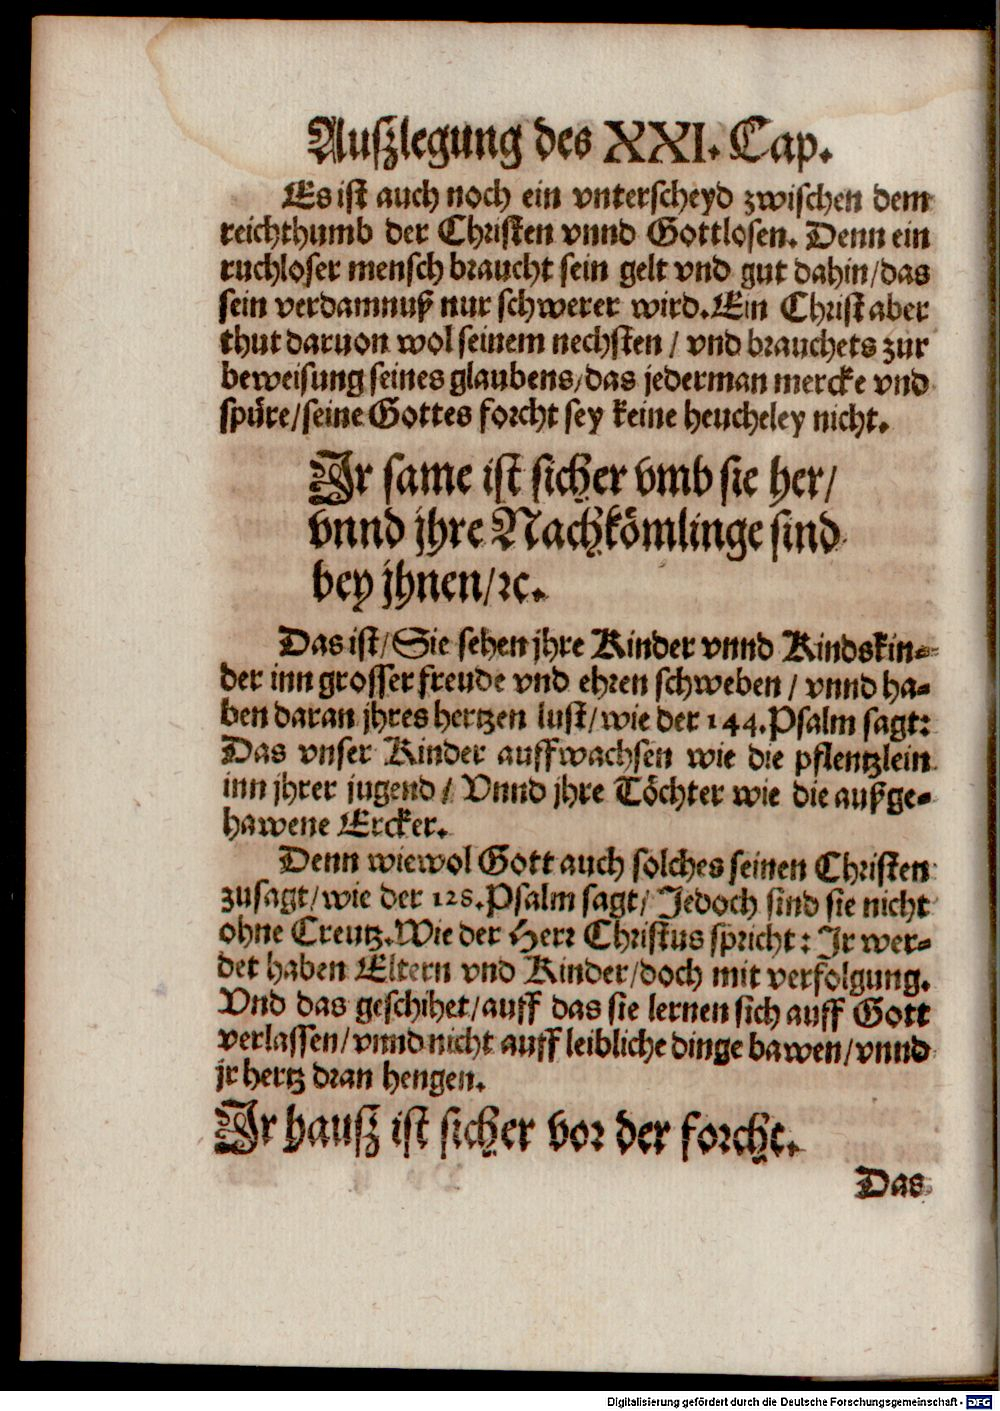 Außlegung des XXI. Cap.
Es ist auch noch ein vnterscheyd zwischen dem
reichthumb der Christen vnnd Gottlosen. Denn ein
ruchloser mensch braucht sein gelt vnd gut dahin/das
sein verdamnuß nur schwerer wird. Ein Christ aber
thut daruon wol seinem nechsten / vnd brauchets zur
beweisung seines glaubens/das jederman mercke vnd
spüre/seine Gottes forcht sey keine heucheley nicht.
Jr same ist sicher vmb sie her/
vnnd jhre Nachkömlinge sind
bey jhnen/ꝛc.
Das ist/Sie sehen jhre Kinder vnnd Kindskin-
der inn grosser freude vnd ehren schweben / vnnd ha-
ben daran jhres hertzen lust/wie der 144. Psalm sagt:
Das vnser Kinder auffwachsen wie die pflentzlein
inn jhrer jugend / Vnnd jhre Töchter wie die außge-
hawene Ercker.
Denn wiewol Gott auch solches seinen Christen
zusagt/wie der 128. Psalm sagt/ Jedoch sind sie nicht
ohne Creutz. Wie der Herr Christus spricht: Jr wer-
det haben Eltern vnd Kinder/doch mit verfolgung.
Vnd das geschihet/auff das sie lernen sich auff Gott
verlassen/vnnd nicht auff leibliche dinge bawen/vnnd
jr hertz dran hengen.
Jr hauß ist sicher vor der forcht.
Das
Digitalisierung gefördert durch die Deutsche Forschungsgemeinschaft - DFG